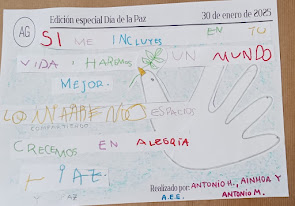 AG
Edición especial Día de la Paz 30 de enero de 2025
SI ME INCLUYES EN TU
VIDA, HAREMOS UN MUNDO
MEJOR.
ESPACIOS
COMPARTIENDO
CRECEMOS EN ALEGRÍA
Y PAZ.
Realizado por: ANTONIO H., AINHOA Y
A.E.E. ANTONIO M.